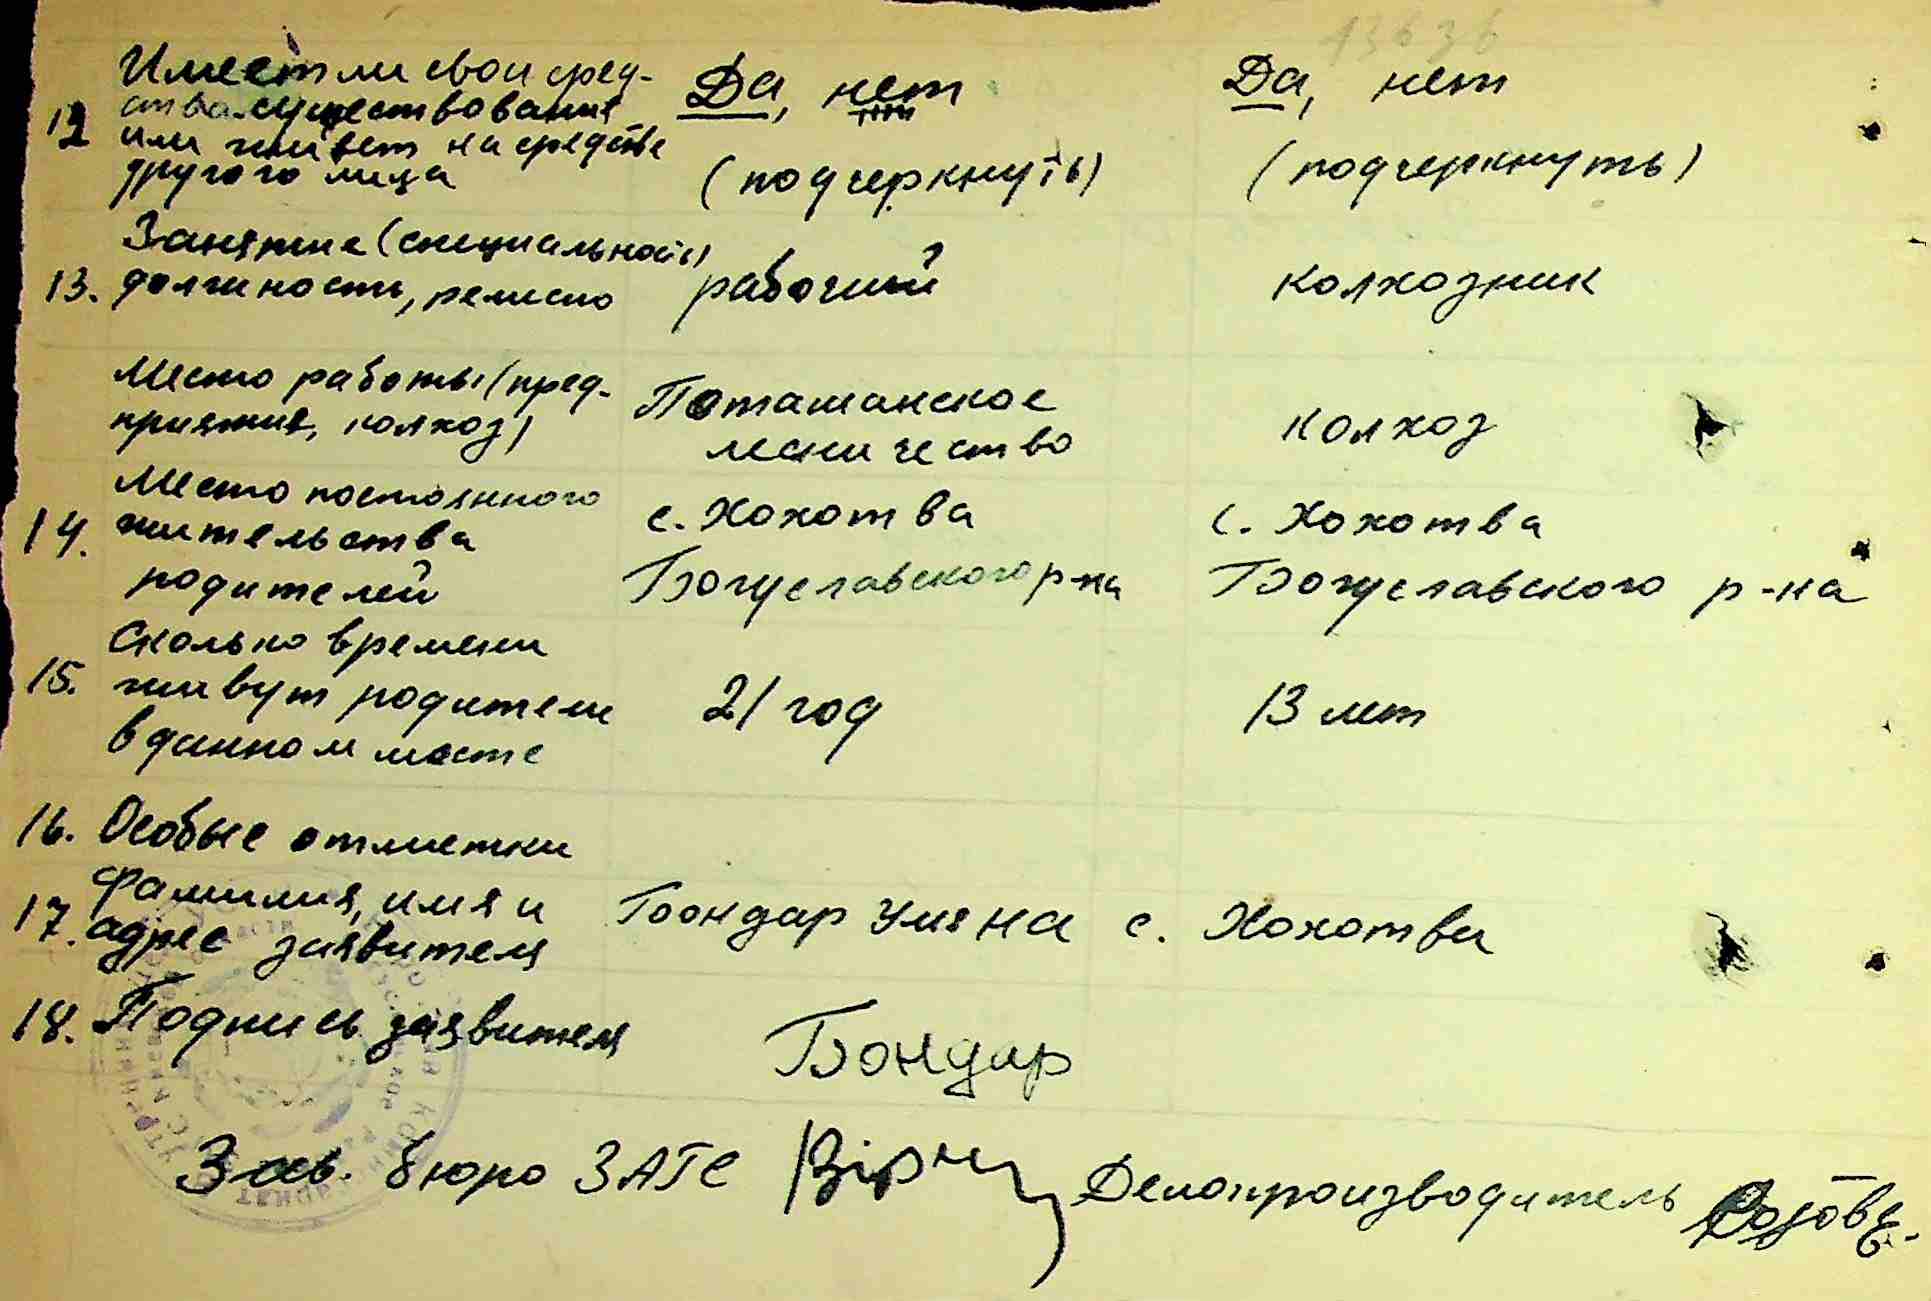 13636
12 Имеет ли свои сред-
ства существования
или живет на средства
другого лица
Да, нет
(подчеркнуть)
Да, нет
(подчеркнуть)
13. Занятие (специальность)
должность, ремесло
рабочий
колхозник
Место работы (пред-
приятия, колхоз)
Поташанское
лесничество
колхоз
14. Место постоянного
жительства
родителей
с. Хохотва
Богуславского р-на
с. Хохотва
Богуславского р-на
15. Сколько времени
живут родители
в данном месте
21 год
13 лет
16. Особые отметки
17. Фамилия, имя и
адрес заявителя
Бондар Уляна с. Хохотва
18. Подпись заявителя
Бондар
Зав. бюро ЗАГС
Делопроизводитель